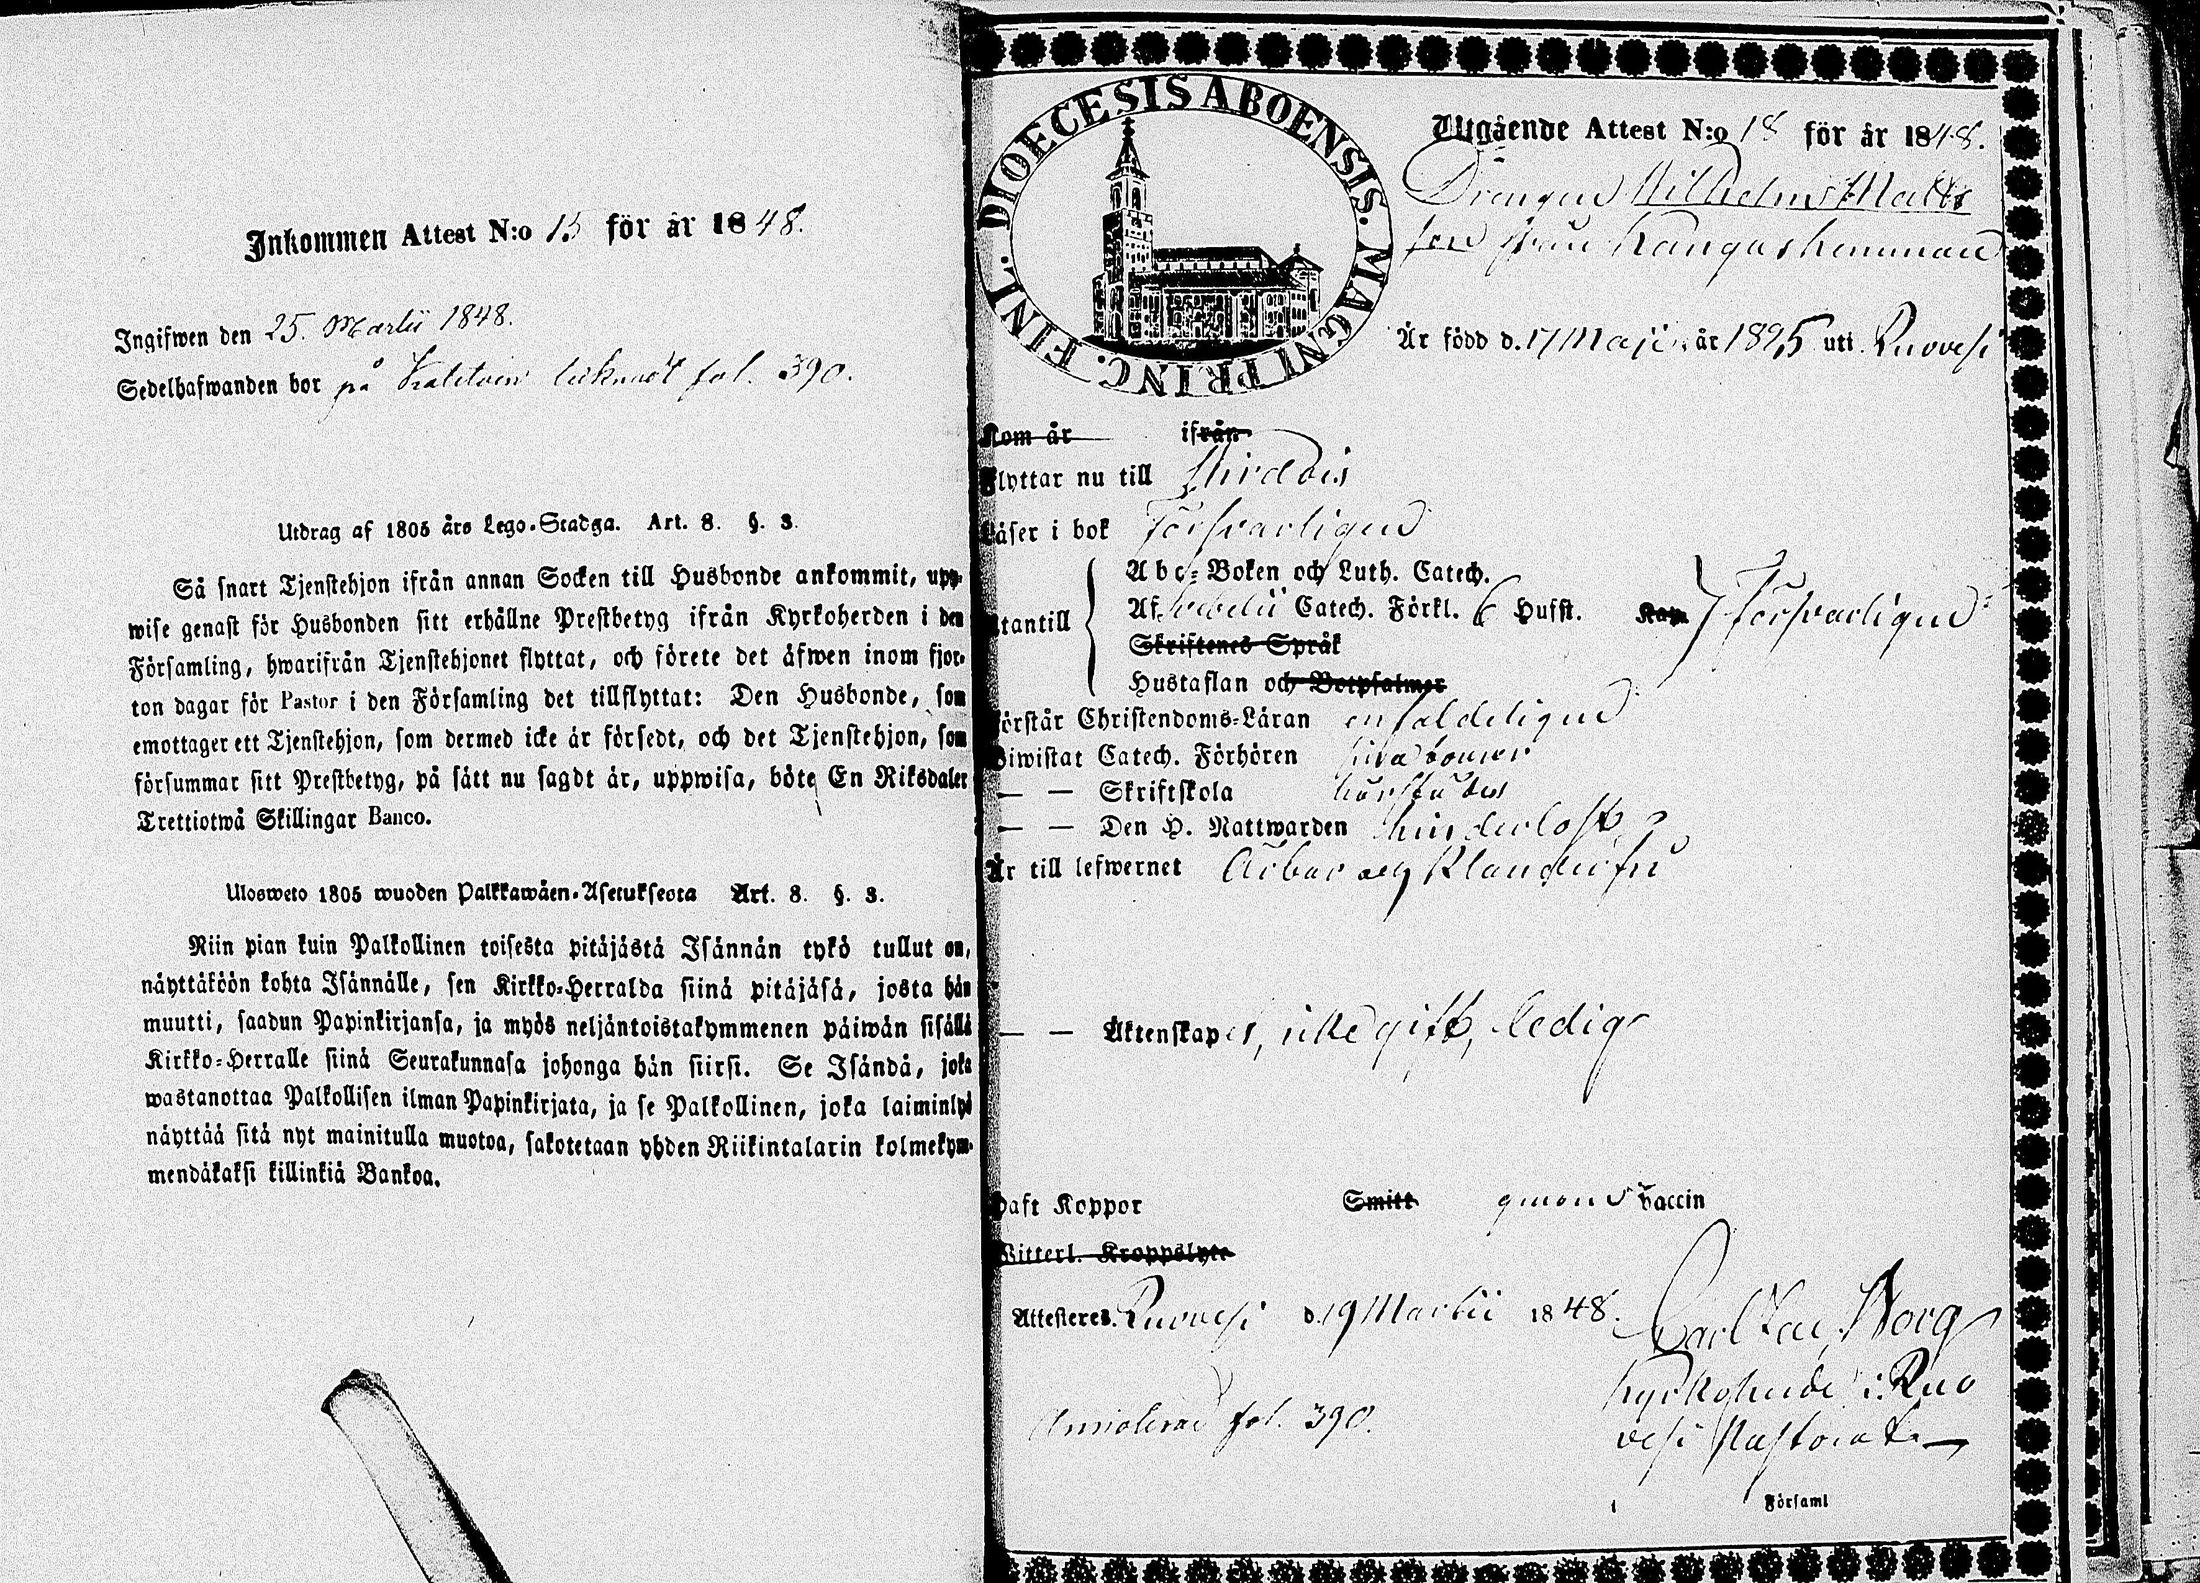 Inkommen Attest N:o 15 för år 1848.
Ingifwen den 25. Martii 1848.
Sedelhafwanden bor på fol. 390.
Utdrag af 1805 års Lego-Stadga. Art. 8. §. 3.
Så snart Tjenstehjon ifrån annan Socken till Husbonde ankommit, upp-
wise genast för Husbonden sitt erhållne Prestbetyg ifrån Kyrkoherden i den
Församling, hwarifrån Tjenstehjonet flyttat, och förete det äfwen inom fjor-
ton dagar för Pastor i den Församling det tillflyttat: Den Husbonde, som
emottager ett Tjenstehjon, som dermed icke är försedt, och det Tjenstehjon, som
försummar sitt Prestbetyg, på sätt nu sagdt är, uppwisa, böte En Riksdaler
Trettiotwå Skillingar Banco.
Ulosweto 1805 wuoden Palkkawäen-Asetuksesta Art. 8. §. 3.
Niin pian kuin Palkollinen toisesta pitäjästä Isännän tykö tullut on,
näyttäköön kohta Isännälle, sen Kirkko-Herralda siinä pitäjäsä, josta hän
muutti, saadun Papinkirjansa, ja myös neljäntoistakymmenen päiwän sisällä
Kirkko-Herralle siinä Seurakunnasa johonga hän siirsi. Se Isändä, joka
wastanottaa Palkollisen ilman Papinkirjata, ja se Palkollinen, joka laiminlyö
näyttää sitä nyt mainitulla muotoa, sakotetaan yhden Riikintalarin kolmekym-
mendäkaksi killinkiä Bankoa.
DIOECESIS ABOENSIS. MAGNI PRINC. FINL.
Utgående Attest N:o 18 för år 1848.
Drengen Wilhelm Matts
son från Kangas hemman
Är född d. 17 Maji år 1825 uti Ruovesi
Kom år ifrån
Flyttar nu till Virdois
Läser i bok Försvarligen
Utantill
Abc-Boken och Luth. Catech.
Af Svebelii Catech. Förkl. 6 Hufst. Kap. Försvarligen
Skriftenes Språk
Hustaflan och Botpsalmer
Förstår Christendoms-Läran enfaldeligen
Biwistat Catech. Förhören
— — Skriftskola
— — Den H. Nattwarden
Är till lefwernet Ärbar och Klanderfri
— — Äktenskapet, icke gift, ledig
Haft Koppor Smitt genom Vaccin
Witterl. Kroppslyte
Attesteres. Ruovesi d. 19 Martii 1848.
Carl Borg
Kyrkoherde i Ruo
vesi Pastorat
Annoterad fol. 390.
Församl